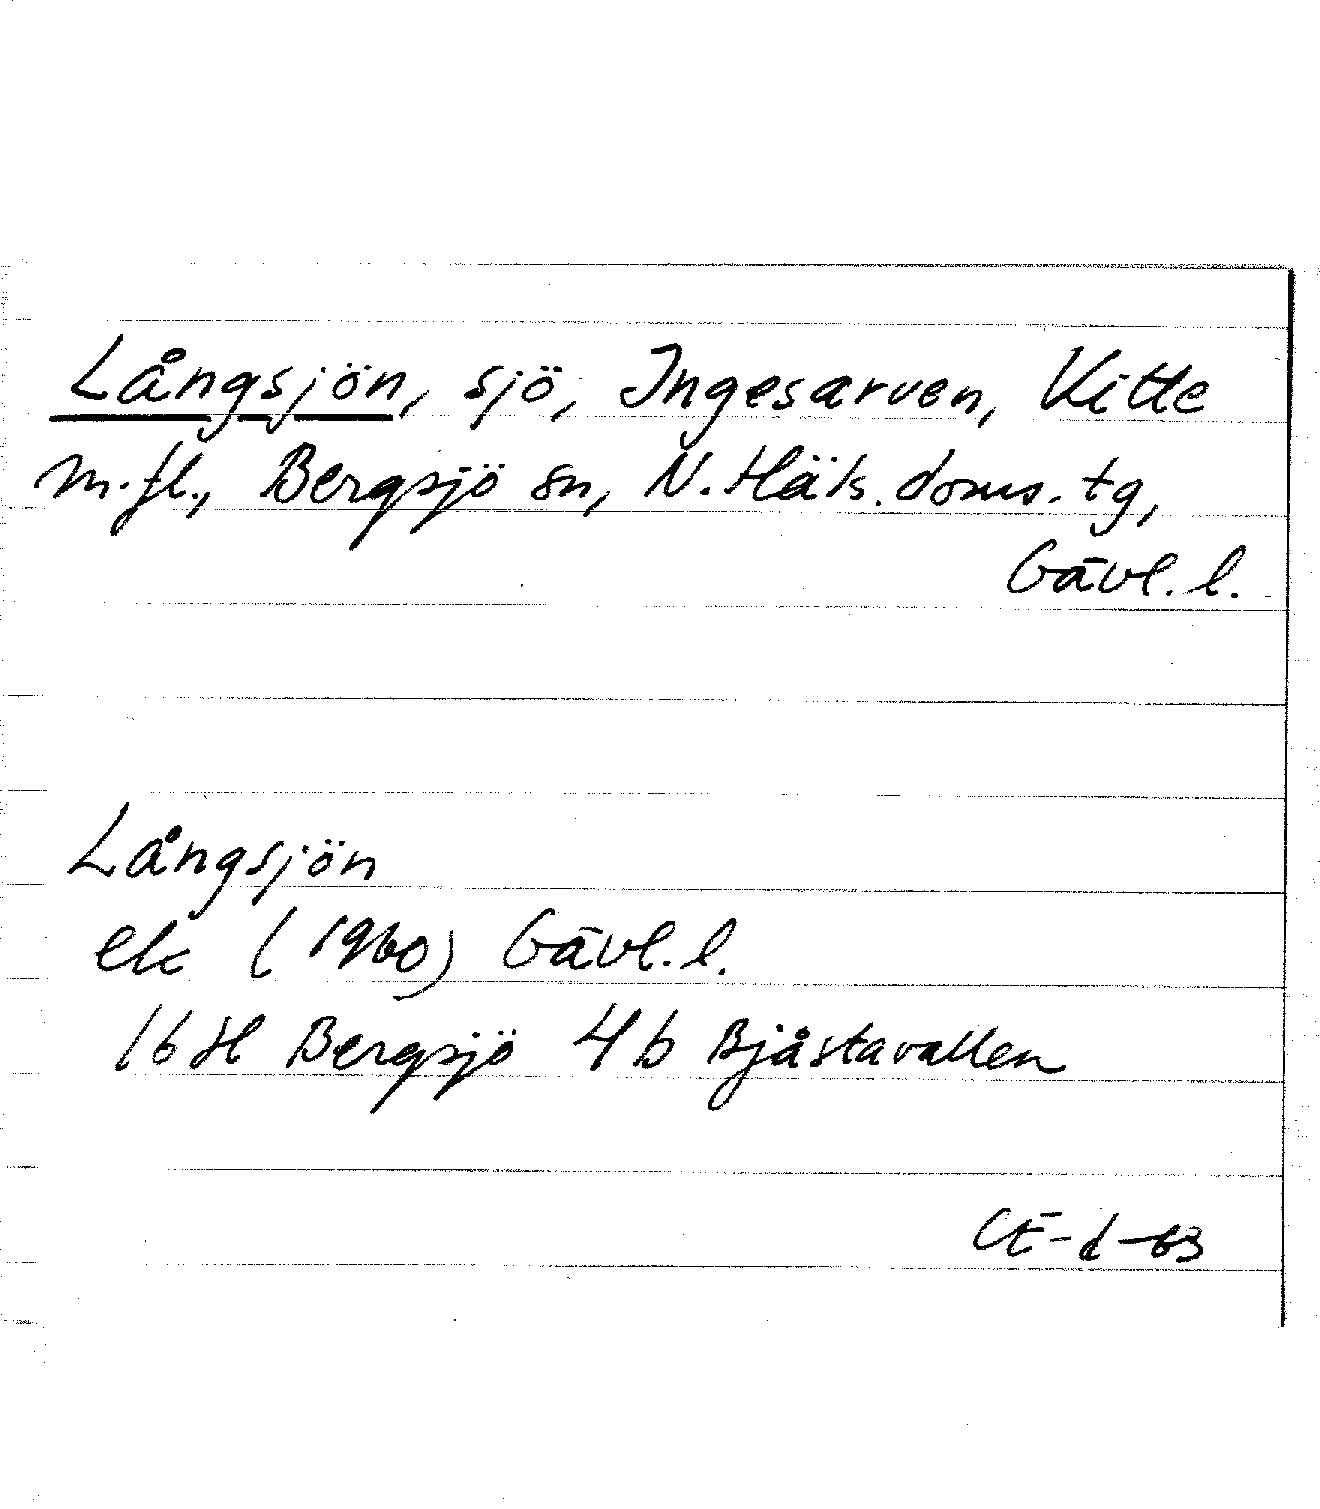 Långsjön, sjö, Ingesarven, Kitte
m.fl., Bergsjö sn, N. Häls. doms. tg,
Gävl. l.
Långsjön
ek (1960) Gävl. l.
16 H Bergsjö 4 b Bjåstavallen
CE-d-63